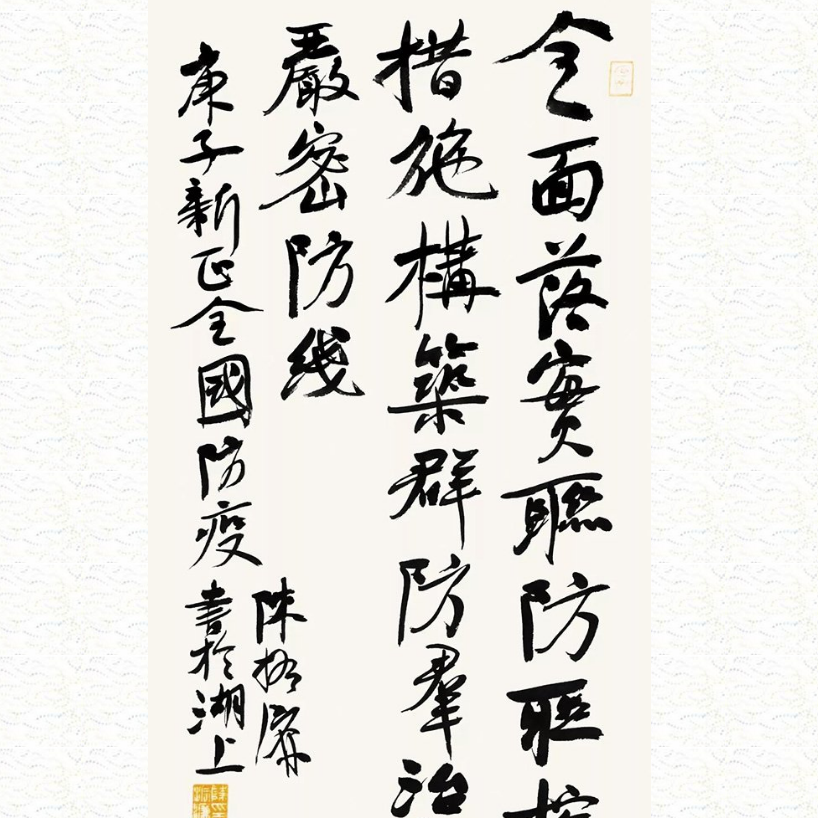 全面落實聯防聯控
措施構築群防羣治
嚴密防线
庚子新正全國防疫
陳振濂
書於湖上